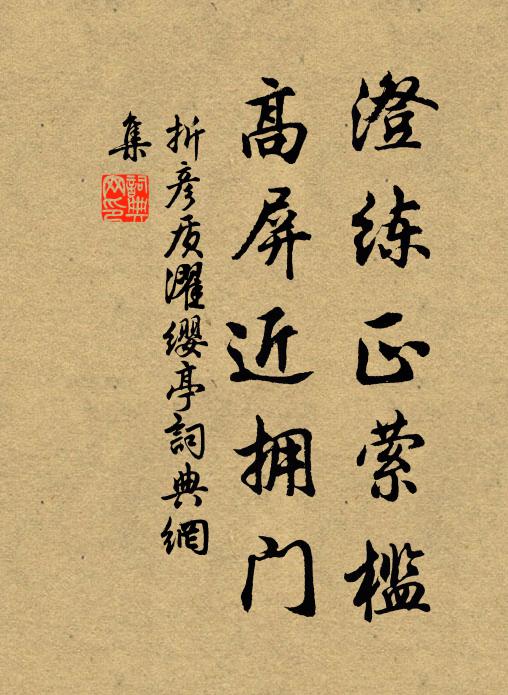 澄练正萦槛
高屏近拥门
折彦质濯缨亭詞典網
集
詞典網印